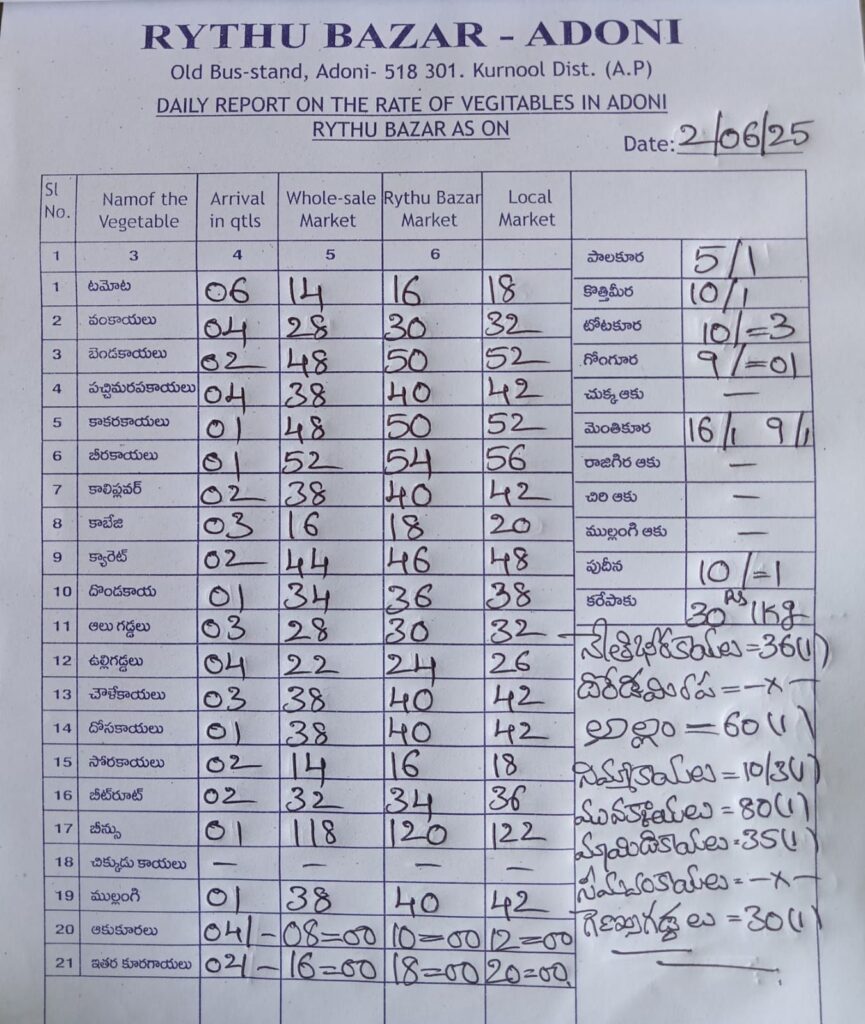 RYTHU BAZAR - ADONI
Old Bus-stand, Adoni- 518 301. Kurnool Dist. (A.P)
DAILY REPORT ON THE RATE OF VEGITABLES IN ADONI
RYTHU BAZAR AS ON
Date: 2/06/25
Sl No. Namof the Vegetable Arrival in qtls Whole-sale Market Rythu Bazar Market Local Market
1 3 4 5 6
1 టమోట 06 14 16 18
2 వంకాయలు 04 28 30 32
3 బెండకాయలు 02 48 50 52
4 పచ్చిమిరపకాయలు 04 38 40 42
5 కాకరకాయలు 01 48 50 52
6 బీరకాయలు 01 52 54 56
7 కాలిఫ్లవర్ 02 38 40 42
8 కాబేజి 03 16 18 20
9 క్యారెట్ 02 44 46 48
10 దొండకాయ 01 34 36 38
11 ఆలు గడ్డలు 03 28 30 32
12 ఉల్లిగడ్డలు 04 22 24 26
13 చౌళేకాయలు 03 38 40 42
14 దోసకాయలు 01 38 40 42
15 సోరకాయలు 02 14 16 18
16 బీట్‌రూట్ 02 32 34 36
17 బీన్సు 01 118 120 122
18 చిక్కుడు కాయలు — — — —
19 ముల్లంగి 01 38 40 42
20 ఆకుకూరలు 04/- 08=00 10=00 12=00
21 ఇతర కూరగాయలు 02/- 16=00 18=00 20=00
పాలకూర 5/1
కొత్తిమీర 10/1
టోటకూర 10/=3
గోంగూర 9/=01
చుక్క ఆకు —
మెంతికూర 16/1 9/1
రాజగిర ఆకు —
చిరి ఆకు —
ముల్లంగి ఆకు —
పుదీన 10/=1
కరేపాకు 30 RS 1Kg
=36(1)
= -x-
అల్లం = 60(1)
నిమ్మకాయలు = 10/3(1)
మునక్కాయలు = 80(1)
మామిడికాయలు = 35(1)
= -x-
గెణుసుగడ్డలు = 30(1)